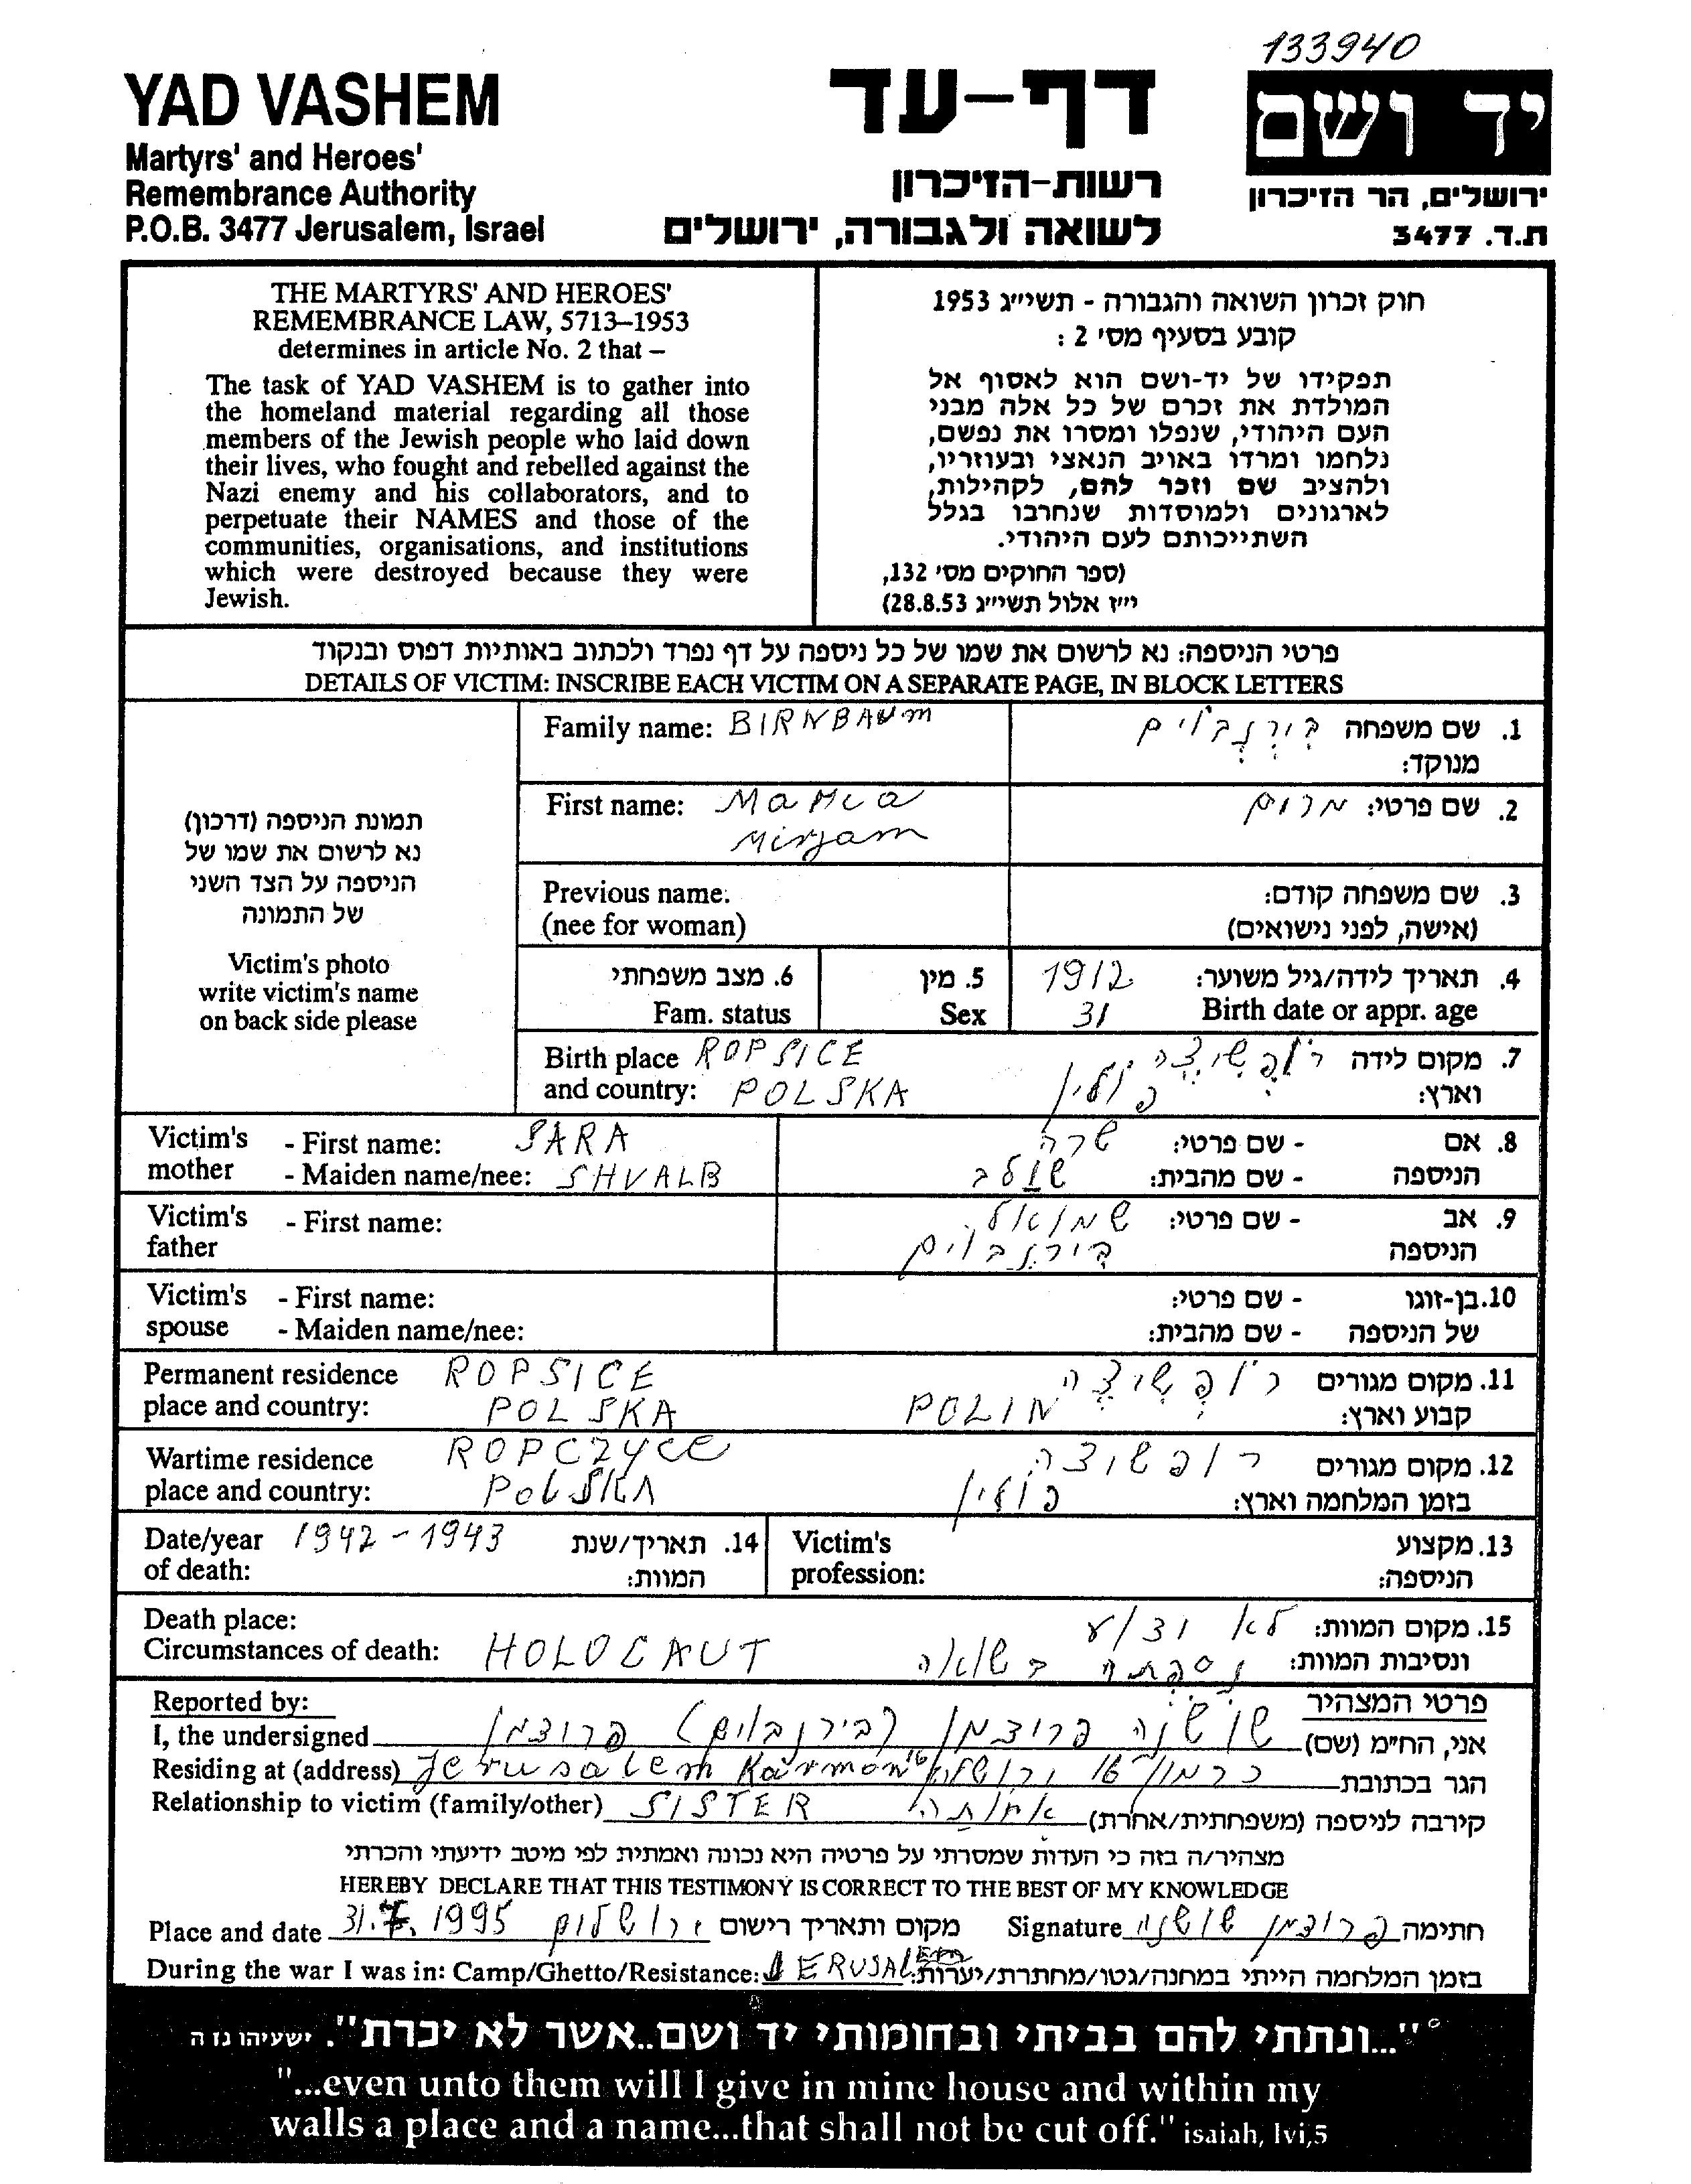 133940
YAD VASHEM
Martyrs' and Heroes'
Remembrance Authority
P.O.B. 3477 Jerusalem, Israel
דף-עד
רשות-הזיכרון
לשואה ולגבורה, ירושלים
יד ושם
ירושלים, הר הזיכרון
ת.ד. 3477
THE MARTYRS' AND HEROES'
REMEMBRANCE LAW, 5713–1953
determines in article No. 2 that –
The task of YAD VASHEM is to gather into
the homeland material regarding all those
members of the Jewish people who laid down
their lives, who fought and rebelled against the
Nazi enemy and his collaborators, and to
perpetuate their NAMES and those of the
communities, organisations, and institutions
which were destroyed because they were
Jewish.
חוק זכרון השואה והגבורה - תשי״ג 1953
קובע בסעיף מס׳ 2 :
תפקידו של יד-ושם הוא לאסוף אל
המולדת את זכרם של כל אלה מבני
העם היהודי, שנפלו ומסרו את נפשם,
נלחמו ומרדו באויב הנאצי ובעוזריו,
ולהציב שם וזכר להם, לקהילות,
לארגונים ולמוסדות שנחרבו בגלל
השתייכותם לעם היהודי.
(ספר החוקים מס׳ 132,
י״ז אלול תשי״ג 28.8.53)
פרטי הניספה: נא לרשום את שמו של כל ניספה על דף נפרד ולכתוב באותיות דפוס ובנקוד
DETAILS OF VICTIM: INSCRIBE EACH VICTIM ON A SEPARATE PAGE, IN BLOCK LETTERS
תמונת הניספה (דרכון)
נא לרשום את שמו של
הניספה על הצד השני
של התמונה
Victim's photo
write victim's name
on back side please
Family name: BIRNBAUM
1. שם משפחה בירנבוים
מנוקד:
First name:
Mirjam
2. שם פרטי: מרים
Previous name:
(nee for woman)
3. שם משפחה קודם:
(אישה, לפני נישואים)
6. מצב משפחתי
Fam. status
5. מין
Sex
4. תאריך לידה/גיל משוער: 1912
Birth date or appr. age 31
Birth place ROPSICE
and country: POLSKA
7. מקום לידה רופשיצה
וארץ: פולין
Victim's - First name: SARA
mother - Maiden name/nee: SHVALB
8. אם - שם פרטי: שרה
הניספה - שם מהבית: שולב
Victim's - First name:
father
9. אב - שם פרטי: שמואל
הניספה בירנבוים
Victim's - First name:
spouse - Maiden name/nee:
10. בן-זוגו - שם פרטי:
של הניספה - שם מהבית:
Permanent residence ROPSICE
place and country: POLSKA
11. מקום מגורים רופשיצה
קבוע וארץ: POLIN
Wartime residence ROPCZYCE
place and country: POLSKA
12. מקום מגורים רופשיצה
בזמן המלחמה וארץ: פולין
Date/year 1942 - 1943
of death:
14. תאריך/שנת
המוות:
Victim's
profession:
13. מקצוע
הניספה:
Death place:
Circumstances of death: HOLOCAUT
15. מקום המוות: לא ידוע
ונסיבות המוות: נספתה בשואה
Reported by:
פרטי המצהיר
I, the undersigned
אני, הח״מ (שם) שושנה פרוצמן (בירנבוים) פרוצמן
Residing at (address) Jerusalem Karmon 16
הגר בכתובת כרמון 16 ירושלים
Relationship to victim (family/other) SISTER
קירבה לניספה (משפחתית/אחרת) אחותה
מצהיר/ה בזה כי העדות שמסרתי על פרטיה היא נכונה ואמתית לפי מיטב ידיעתי והכרתי
HEREBY DECLARE THAT THIS TESTIMONY IS CORRECT TO THE BEST OF MY KNOWLEDGE
Place and date 31.7.1995 ירושלים מקום ותאריך רישום
Signature פרוצמן שושנה חתימה
During the war I was in: Camp/Ghetto/Resistance: JERUSALEM
בזמן המלחמה הייתי במחנה/גטו/מחתרת/יערות:
"...ונתתי להם בביתי ובחומותי יד ושם..אשר לא יכרת". ישעיהו נז ה
"...even unto them will I give in mine house and within my
walls a place and a name...that shall not be cut off." isaiah, lvi,5